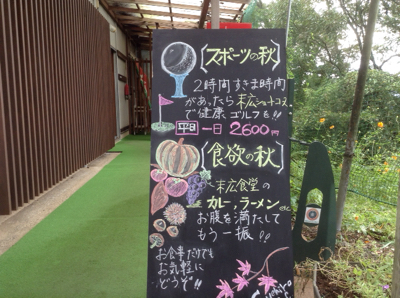 〔スポーツの秋〕
2時間すきま時間
があったら末広ショートコース
で健康ゴルフを!!
平日 一日 2600円
〔食欲の秋〕
末広食堂の
カレー,ラーメンetc
お腹を満たして
もう一振!!
お食事だけでも
お気軽に
どうぞ!!